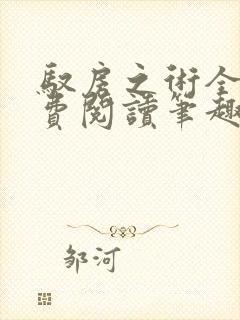 驭房之术全
费阅读笔趣
邹河